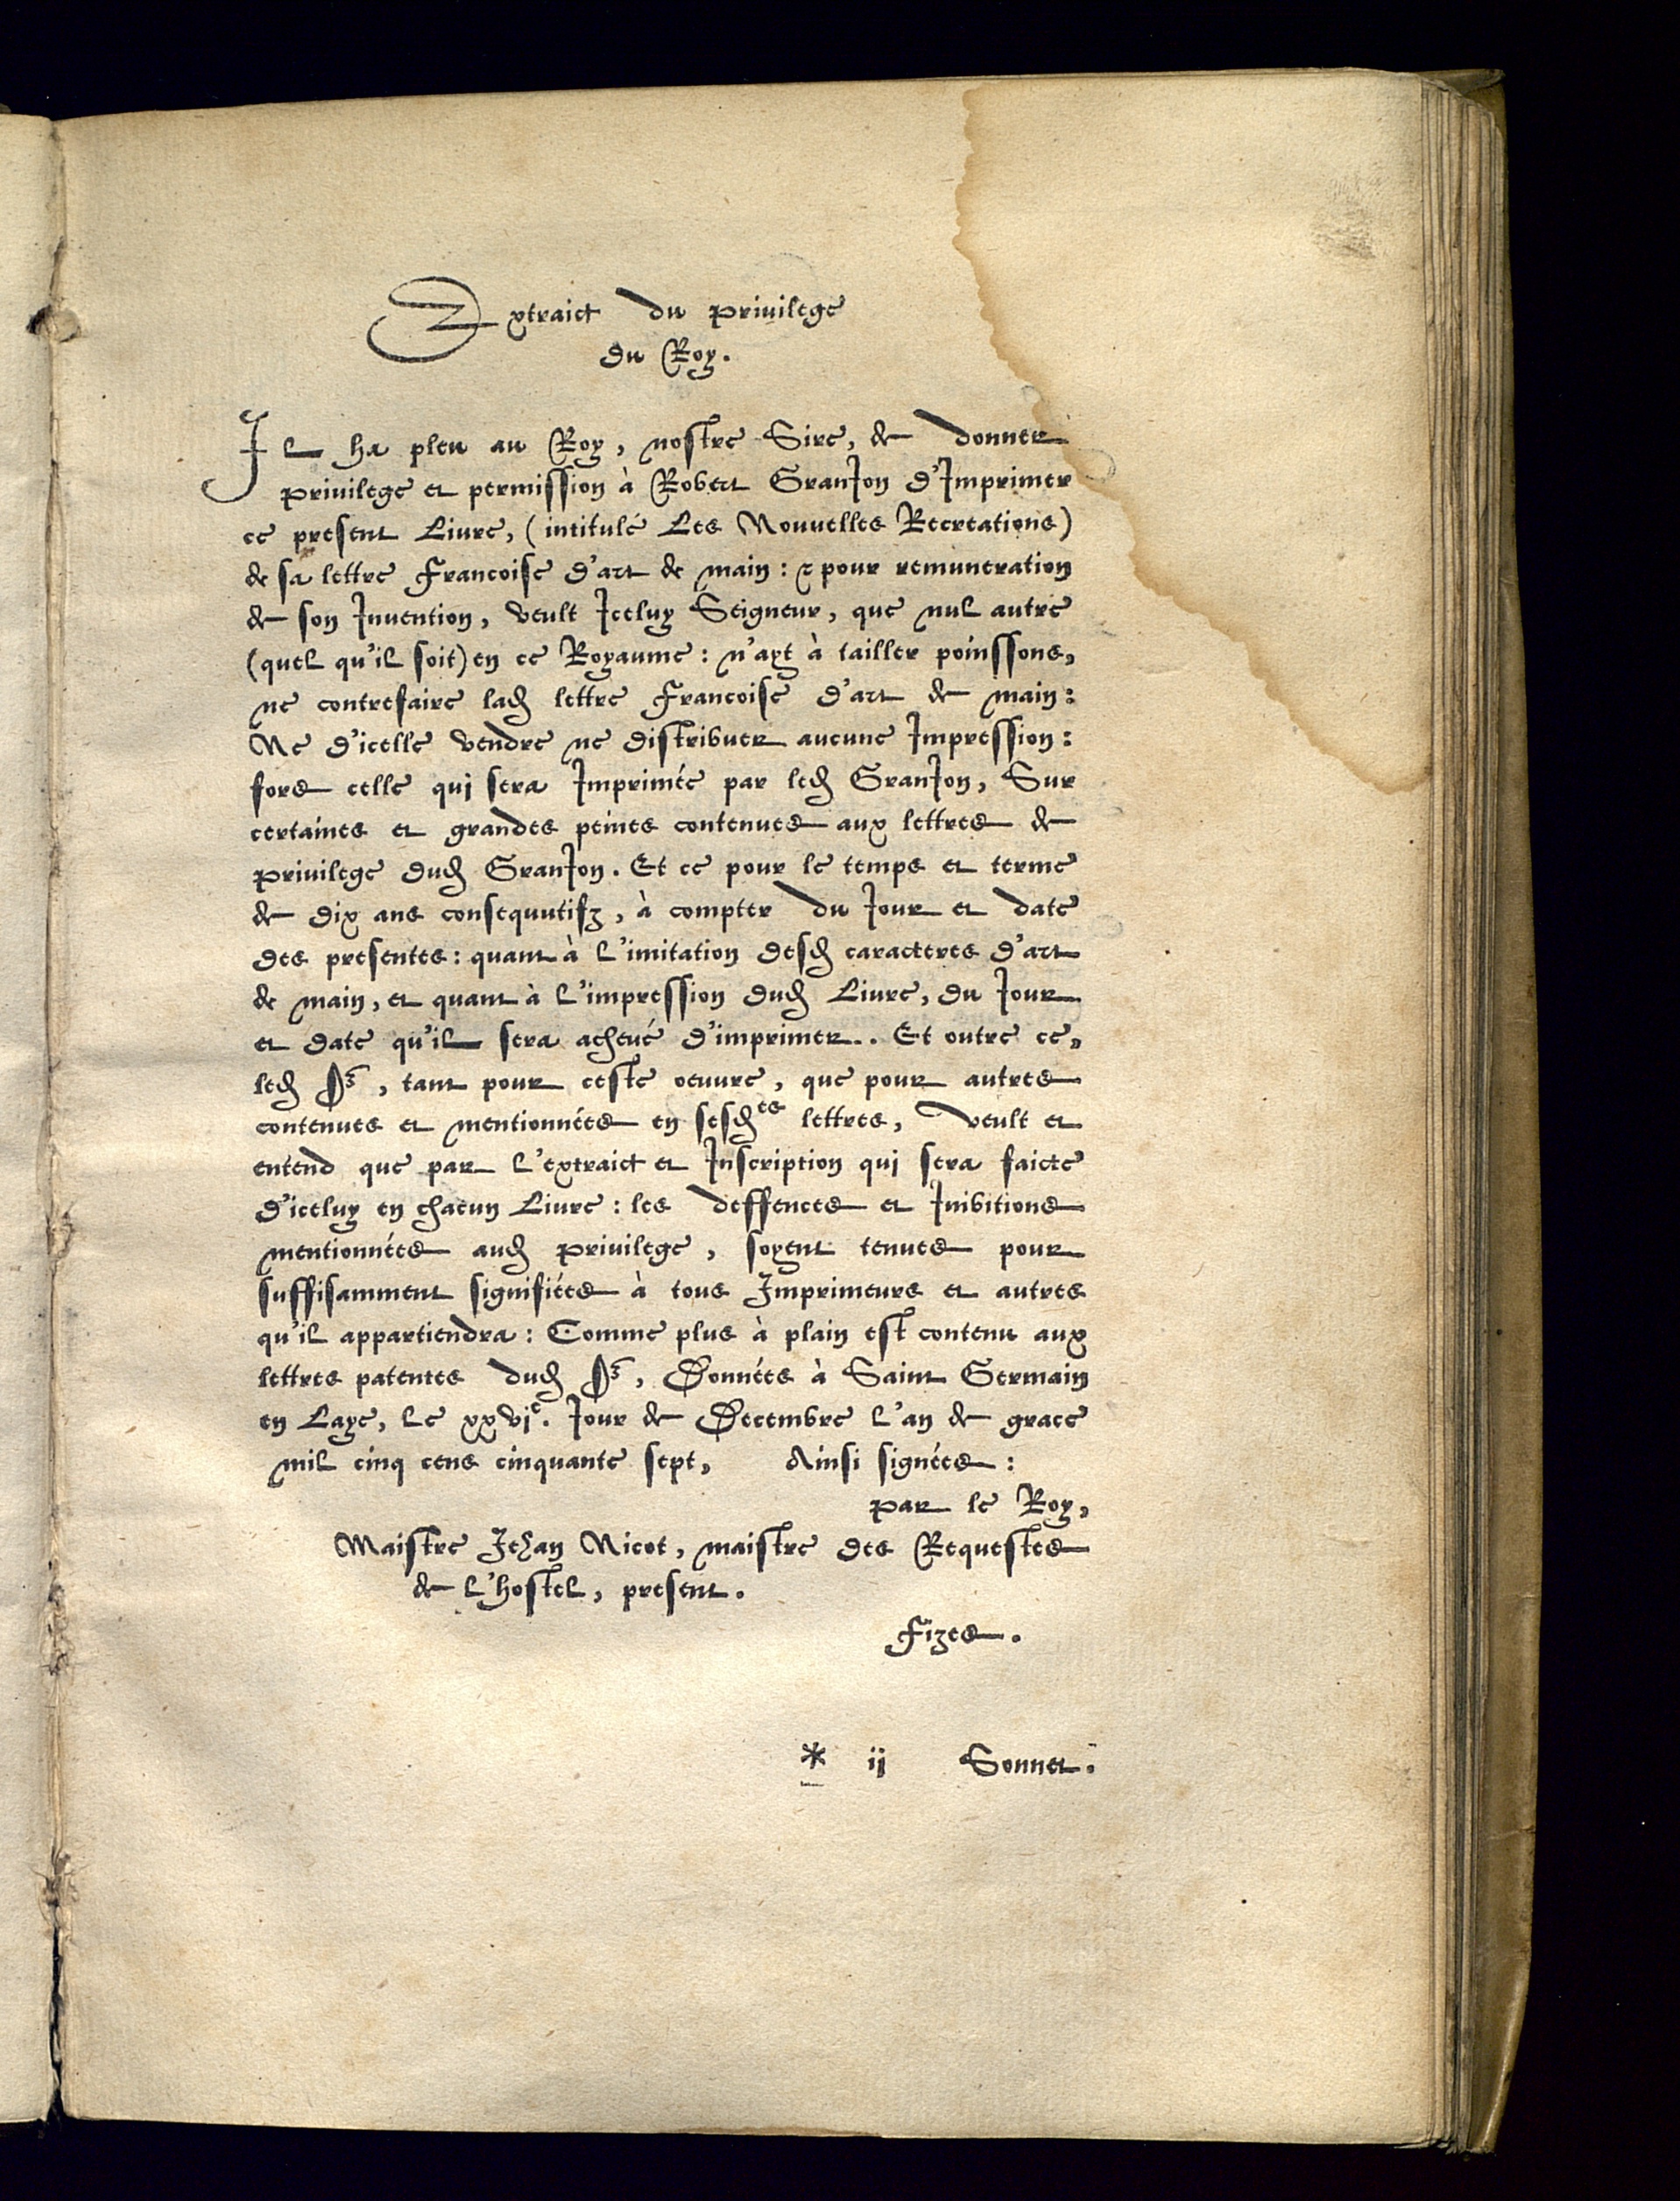 Extraict du privilege
du Roy.
Il ha pleu au Roy, nostre Sire, de donner
privilege et permission à Robert GranIon d'Imprimer
ce present Livre, (intitulé Les Nouvelles Recreations)
de sa lettre Francoise d'art de main: & pour remuneration
de son Invention, veult Iceluy Seigneur, que nul autre
(quel qu'il soit) en ce Royaume: n'ayt à tailler poinssons,
ne contrefaire lad lettre Francoise d'art de main:
Ne d'icelle vendre ne distribuer aucune Impression:
fors celle qui sera Imprimée par led GranIon, Sur
certaines et grandes peines contenues aux lettres de
privilege dud GranIon. Et ce pour le temps et terme
de dix ans consequutifz, à compter du Iour et date
des presentes: quant à l'imitation desd caracteres d'art
de main, et quant à l'impression dud Livre, du Iour
et date qu'il sera achevé d'imprimer.. Et outre ce,
led Sr, tant pour ceste oeuvre, que pour autres
contenues et mentionnées en sesdes lettres, veult et
entend que par l'extraict et Inscription qui sera faicte
d'iceluy en chacun Livre: les deffences et Inibitions
mentionnées aud privilege, soyent tenues pour
suffisamment signifiées à tous Imprimeurs et autres
qu'il appartiendra: Comme plus à plain est contenu aux
lettres patentes dud Sr, Données à Saint Germain
en Laye, le xxvje. Iour de Decembre l'an de grace
mil cinq cens cinquante sept, Ainsi signées:
par le Roy,
Maistre Jehan Nicot, maistre des Requestes
de l'hostel, present.
Fizes.
* ij Sonnet.